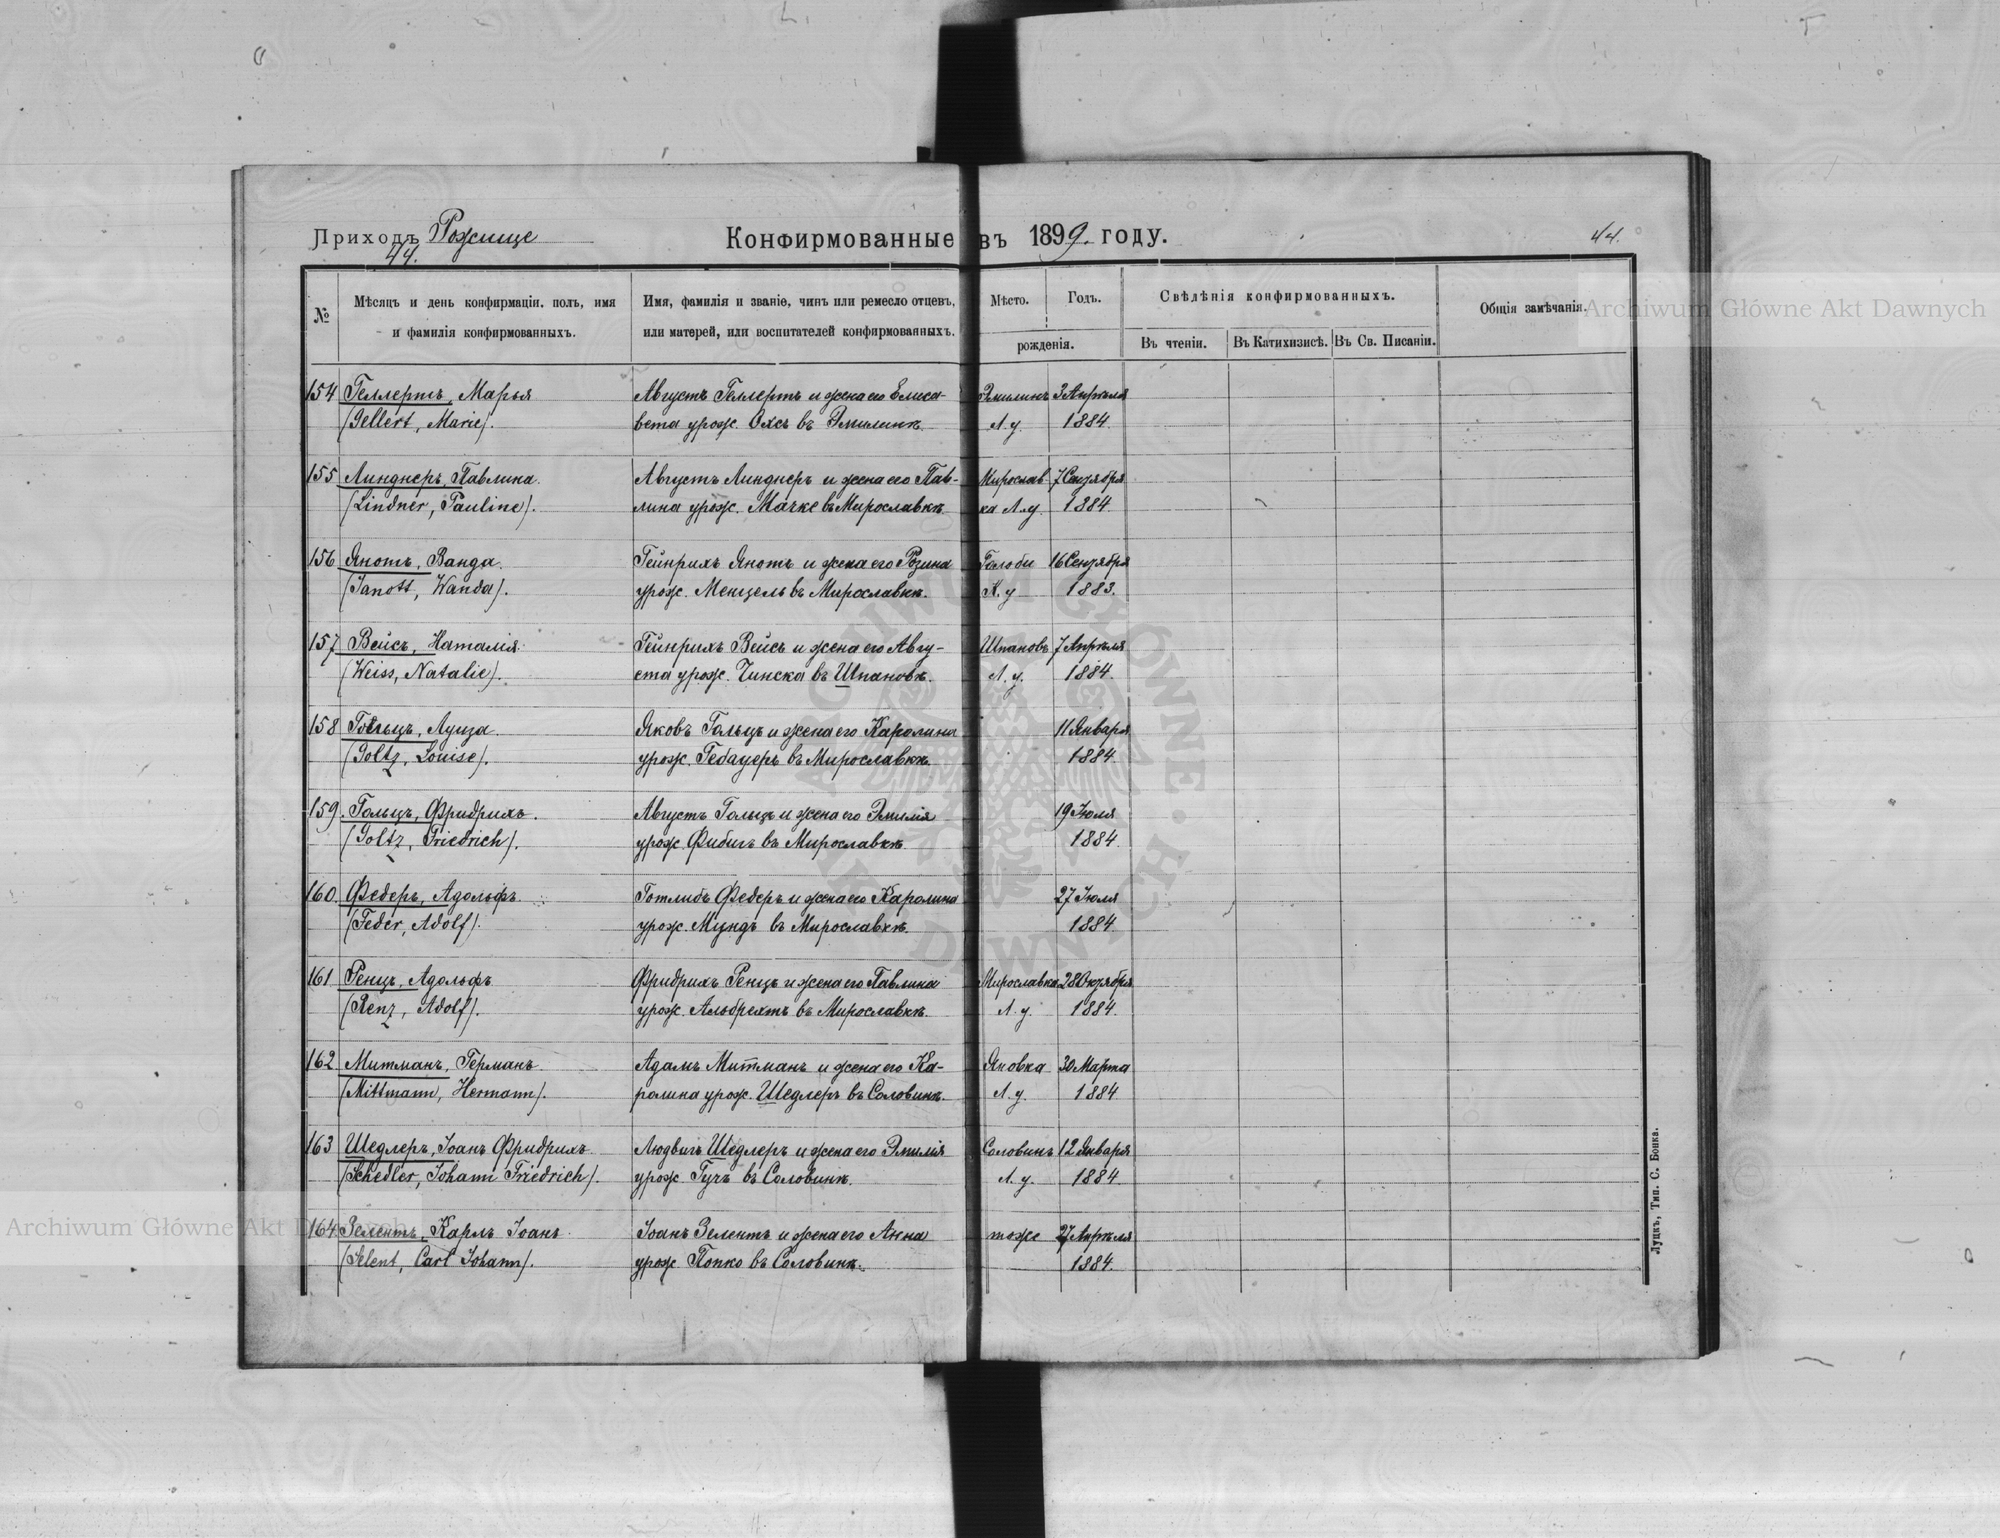 Приходъ Рожище
44.
Конфирмованные въ 1899. году.
44.
№
Мѣсяцъ и день конфирмаціи, полъ, имя
и фамилія конфирмованныхъ.
Имя, фамилія и званіе, чинъ или ремесло отцевъ,
или матерей, или воспитателей конфирмованныхъ.
Мѣсто.
Годъ.
рожденія.
Свѣдѣнія конфирмованныхъ.
Въ чтеніи.
Въ Катихизисѣ.
Въ Св. Писаніи.
Общія замѣчанія.
154 Геллертъ, Марья Августъ Геллертъ и жена его Елиса- Эмилинъ 3 Апрѣля
(Gellert, Marie). вета урож. Охсъ въ Эмилинѣ Л. у. 1884.
155 Линднеръ, Павлина. Августъ Линднеръ и жена его Пав- Мирослав 7 Сентября
(Lindner, Pauline). лина урож. Мачке въ Мирославкѣ ка Л. у. 1884
156 Янотъ, Ванда. Гейнрихъ Янотъ и жена его Розина Голобы 16 Сентября
(Janott, Wanda). урож. Менцель въ Мирославкѣ. К. у 1883.
157 Вейсъ, Наталія. Гейнрихъ Вейсъ и жена его Авгу- Шпановъ 7 Апрѣля
(Weiss, Natalie). ста урож. Чинска въ Шпановѣ. Л. у. 1884.
158 Гольцъ, Луиза. Яковъ Гольцъ и жена его Каролина 11 Января
(Goltz, Louise). урож. Гебауеръ въ Мирославкѣ 1884
159. Гольцъ, Фридрихъ. Августъ Гольцъ и жена его Эмилія 19 Іюля
(Goltz, Friedrich). урож. Фибигъ въ Мирославкѣ 1884
160. Федеръ, Адольфъ. Готлибъ Федеръ и жена его Каролина 27 Іюля
(Feder, Adolf). урож. Мундъ въ Мирославкѣ. 1884
161 Ренцъ, Адольфъ Фридрихъ Ренцъ и жена его Павлина Мирославка 28 Октября
(Renz, Adolf). урож. Альбрехтъ въ Мирославкѣ. Л. у. 1884.
162 Митманъ, Германъ. Адамъ Митманъ и жена его Ка- Яновка 30 Марта
(Mittmann, Hermann). ролина урож. Шедлеръ въ Соловинѣ. Л. у. 1884
163 Шедлеръ, Іоанъ Фридрихъ. Людвигъ Шедлеръ и жена его Эмилія Соловинъ 12 Января
(Schedler, Johann Friedrich). урож. Гучъ въ Соловинѣ. Л. у. 1884
164 Зелентъ, Карлъ Іоанъ. Іоанъ Зелентъ и жена его Анна тоже 27 Апрѣля
(Selent, Carl Johann). урож Попко въ Соловинѣ. 1884.
Луцкъ, Тип. С. Бонка.
Archiwum Główne Akt Dawnych
Archiwum Główne Akt Dawnych
ARCHIWUM GŁÓWNE AKT DAWNYCH